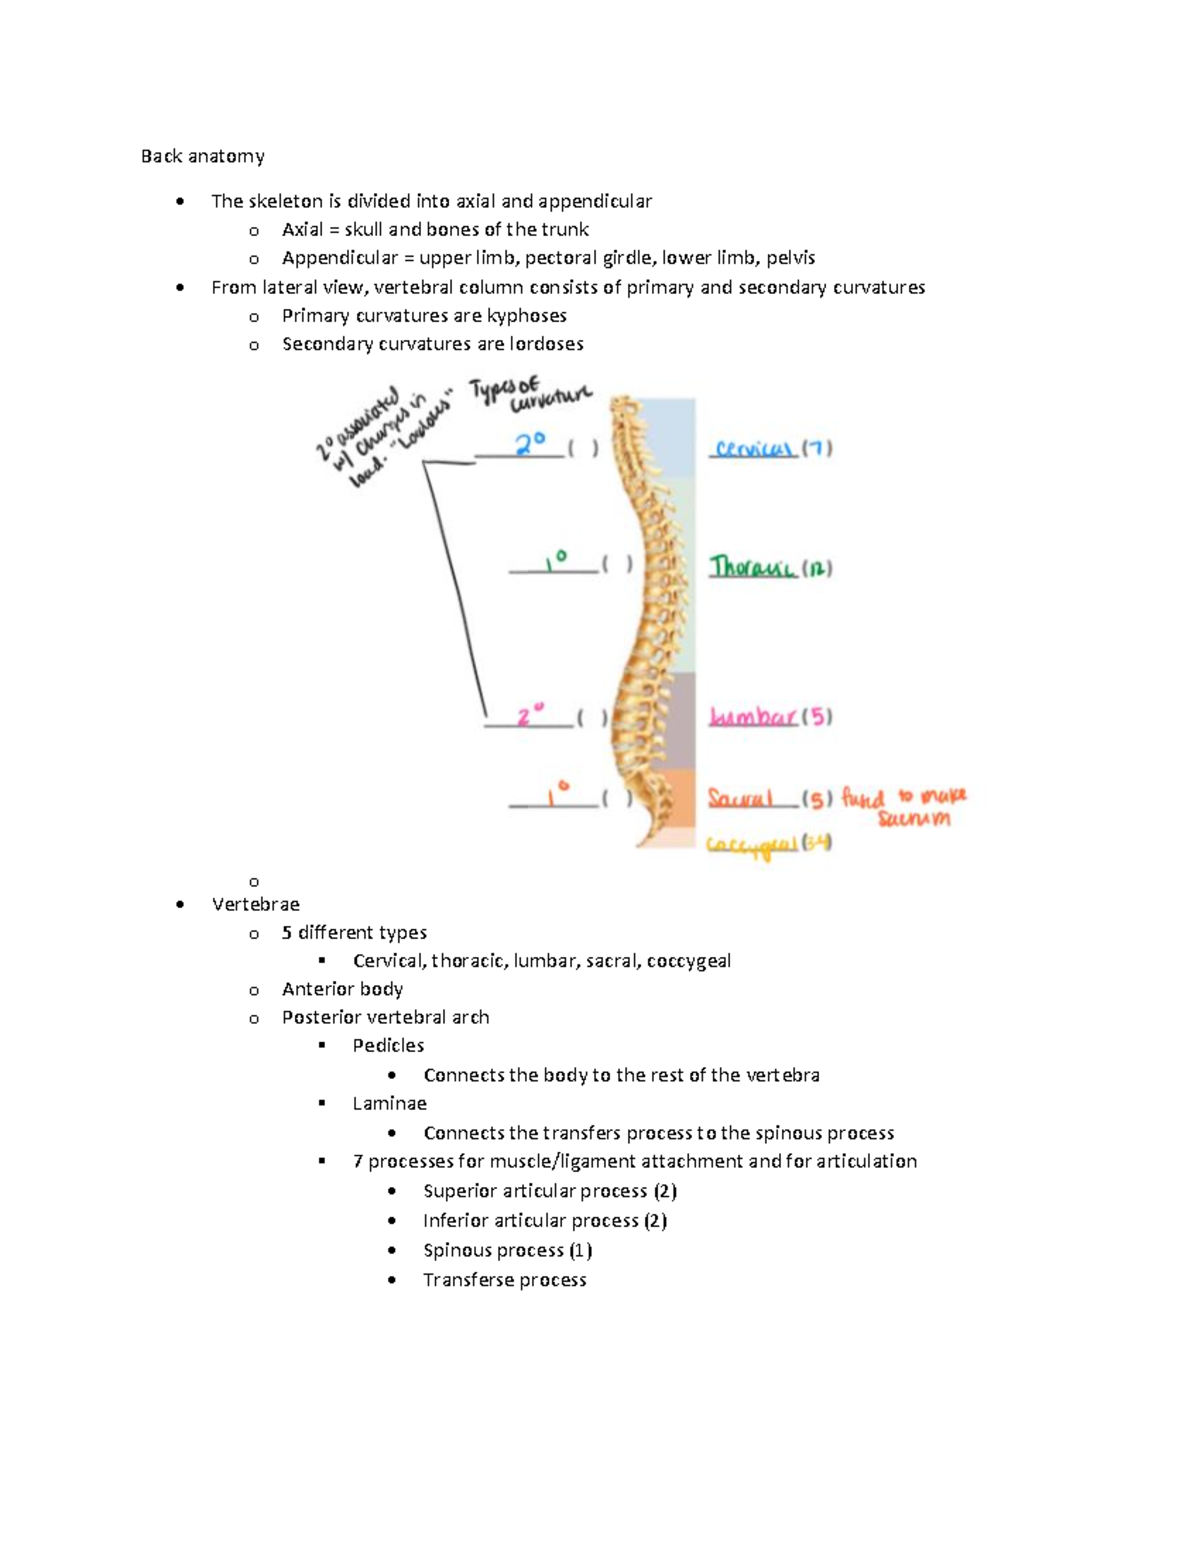 Back anatomy
• The skeleton is divided into axial and appendicular
o Axial = skull and bones of the trunk
o Appendicular = upper limb, pectoral girdle, lower limb, pelvis
• From lateral view, vertebral column consists of primary and secondary curvatures
o Primary curvatures are kyphoses
o Secondary curvatures are lordoses
2° associated
w/ changes in
load. "Lordoses"
Types of
curvature
2° ( )
cervical (7)
1° ( )
Thoracic (12)
2° ( )
Lumbar (5)
1° ( )
Sacral (5) fused to make
sacrum
coccygeal (34)
o
• Vertebrae
o 5 different types
▪ Cervical, thoracic, lumbar, sacral, coccygeal
o Anterior body
o Posterior vertebral arch
▪ Pedicles
• Connects the body to the rest of the vertebra
▪ Laminae
• Connects the transfers process to the spinous process
▪ 7 processes for muscle/ligament attachment and for articulation
• Superior articular process (2)
• Inferior articular process (2)
• Spinous process (1)
• Transferse process